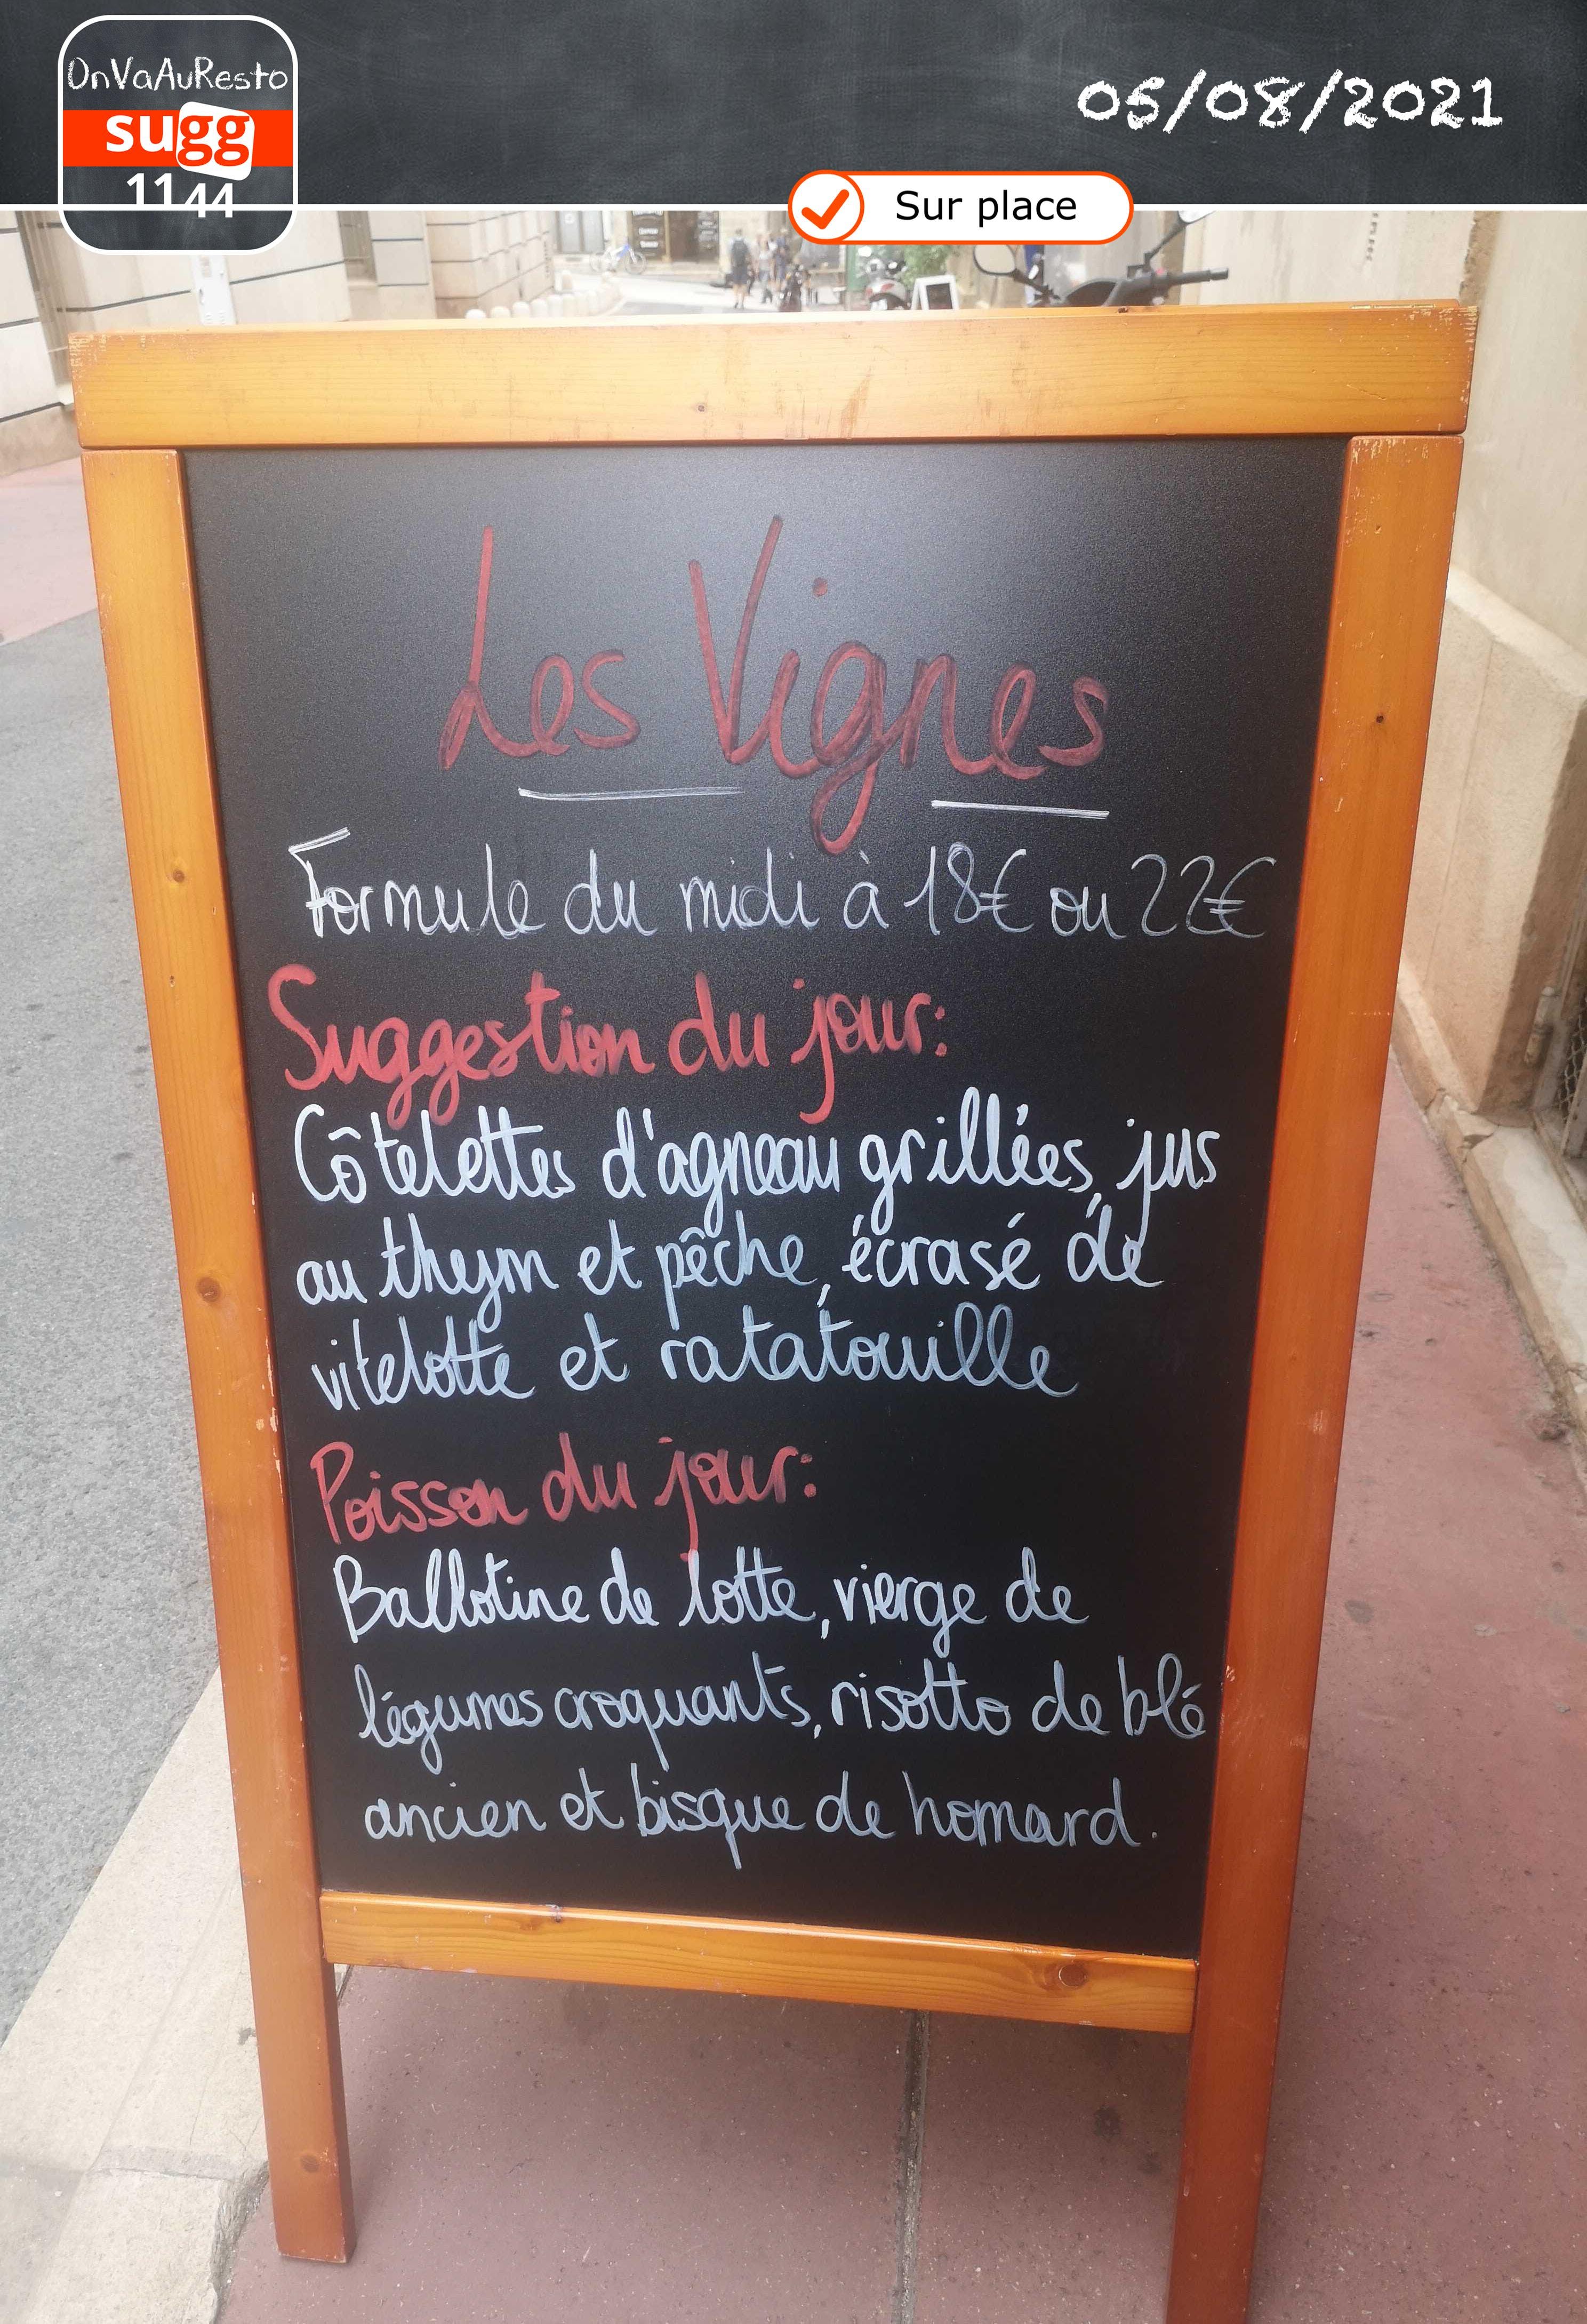 OnVaAuResto
sugg
1144
05/08/2021
Sur place
Les Vignes
Formule du midi à 18€ ou 22€
Suggestion du jour:
Côtelettes d'agneau grillées, jus
au thym et pêche, écrasé de
vitelotte et ratatouille
Poisson du jour:
Ballotine de lotte, vierge de
légumes croquants, risotto de blé
ancien et bisque de homard.